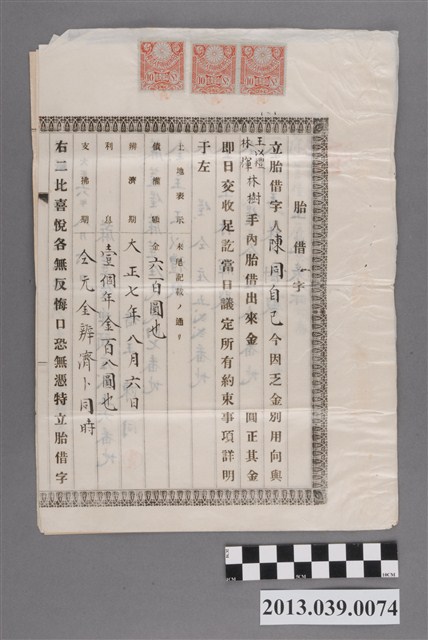 胎借字
立胎借字人陳同自己今因乏金別用向與
王以禮 林樹手內胎借出來金 圓正其金
即日交收足訖當日議定所有約束事項詳明
于左
土地表示 末尾記載ノ通リ
債權額 金六百圓也
辨濟期 大正七年八月六日
利息 壹個年金百八圓也
支拂期 仝元金辨濟ト同時
右二比喜悅各無反悔口恐無憑特立胎借字
10 10 10
2013.039.0074